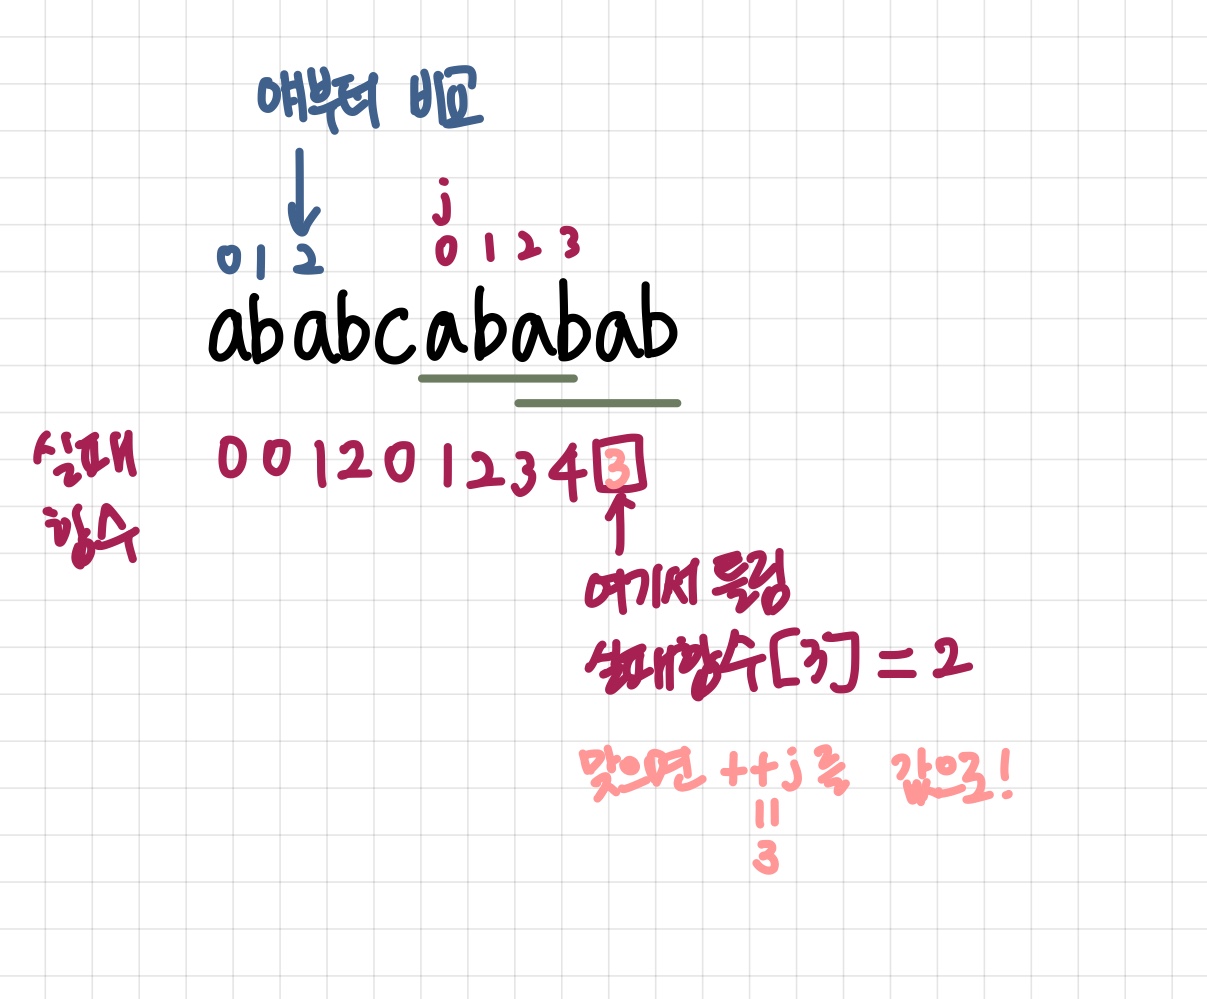 얘부터 비교
j
0 1 2 0 1 2 3
ababcababab
실패 0 0 1 2 0 1 2 3 4 3
함수
여기서 틀림
실패함수[3] = 2
맞으면 ++j를 값으로!
=
3